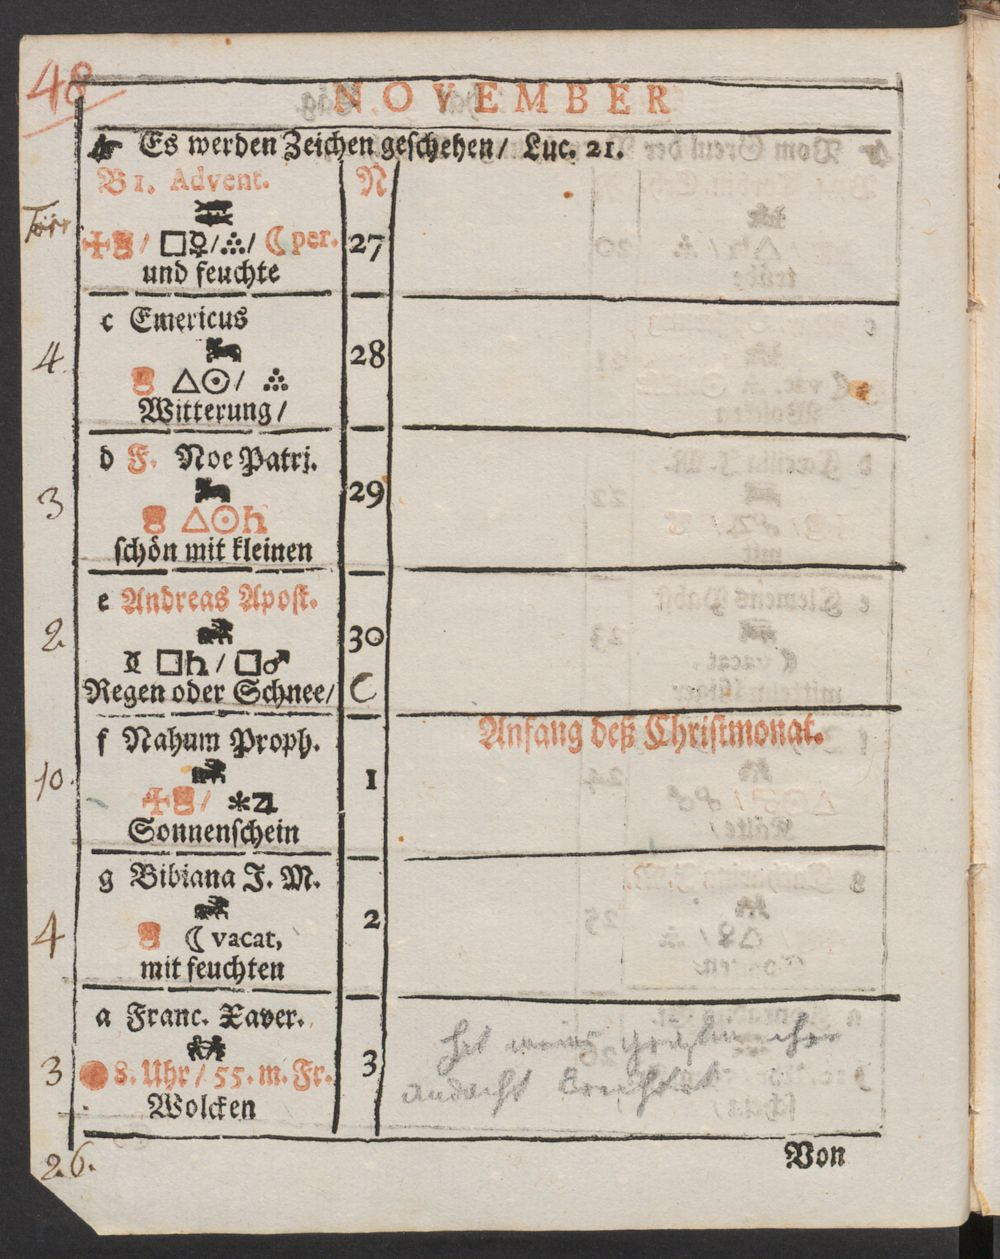 48
NOVEMBER
☛ Es werden Zeichen geschehen / Luc. 21.
B 1. Advent. N
♓
/ □☿/⛬/ ☾ per. 27
und feuchte
c Emericus
4. 28
△☉/ ⛬
Witterung /
d F. Noe Patrj.
3 29
△☉♄
schön mit kleinen
e Andreas Apost.
2. 30
□♄ / □♂
Regen oder Schnee/ C
Anfang deß Christmonat.
f Nahum Proph.
10. 1
/ ✱♃
Sonnenschein
g Bibiana J. M.
4 2
☾ vacat,
mit feuchten
a Franc. Xaver.
3 8. Uhr / 55. m. Fr. 3
andacht
Wolcken
26.
Von